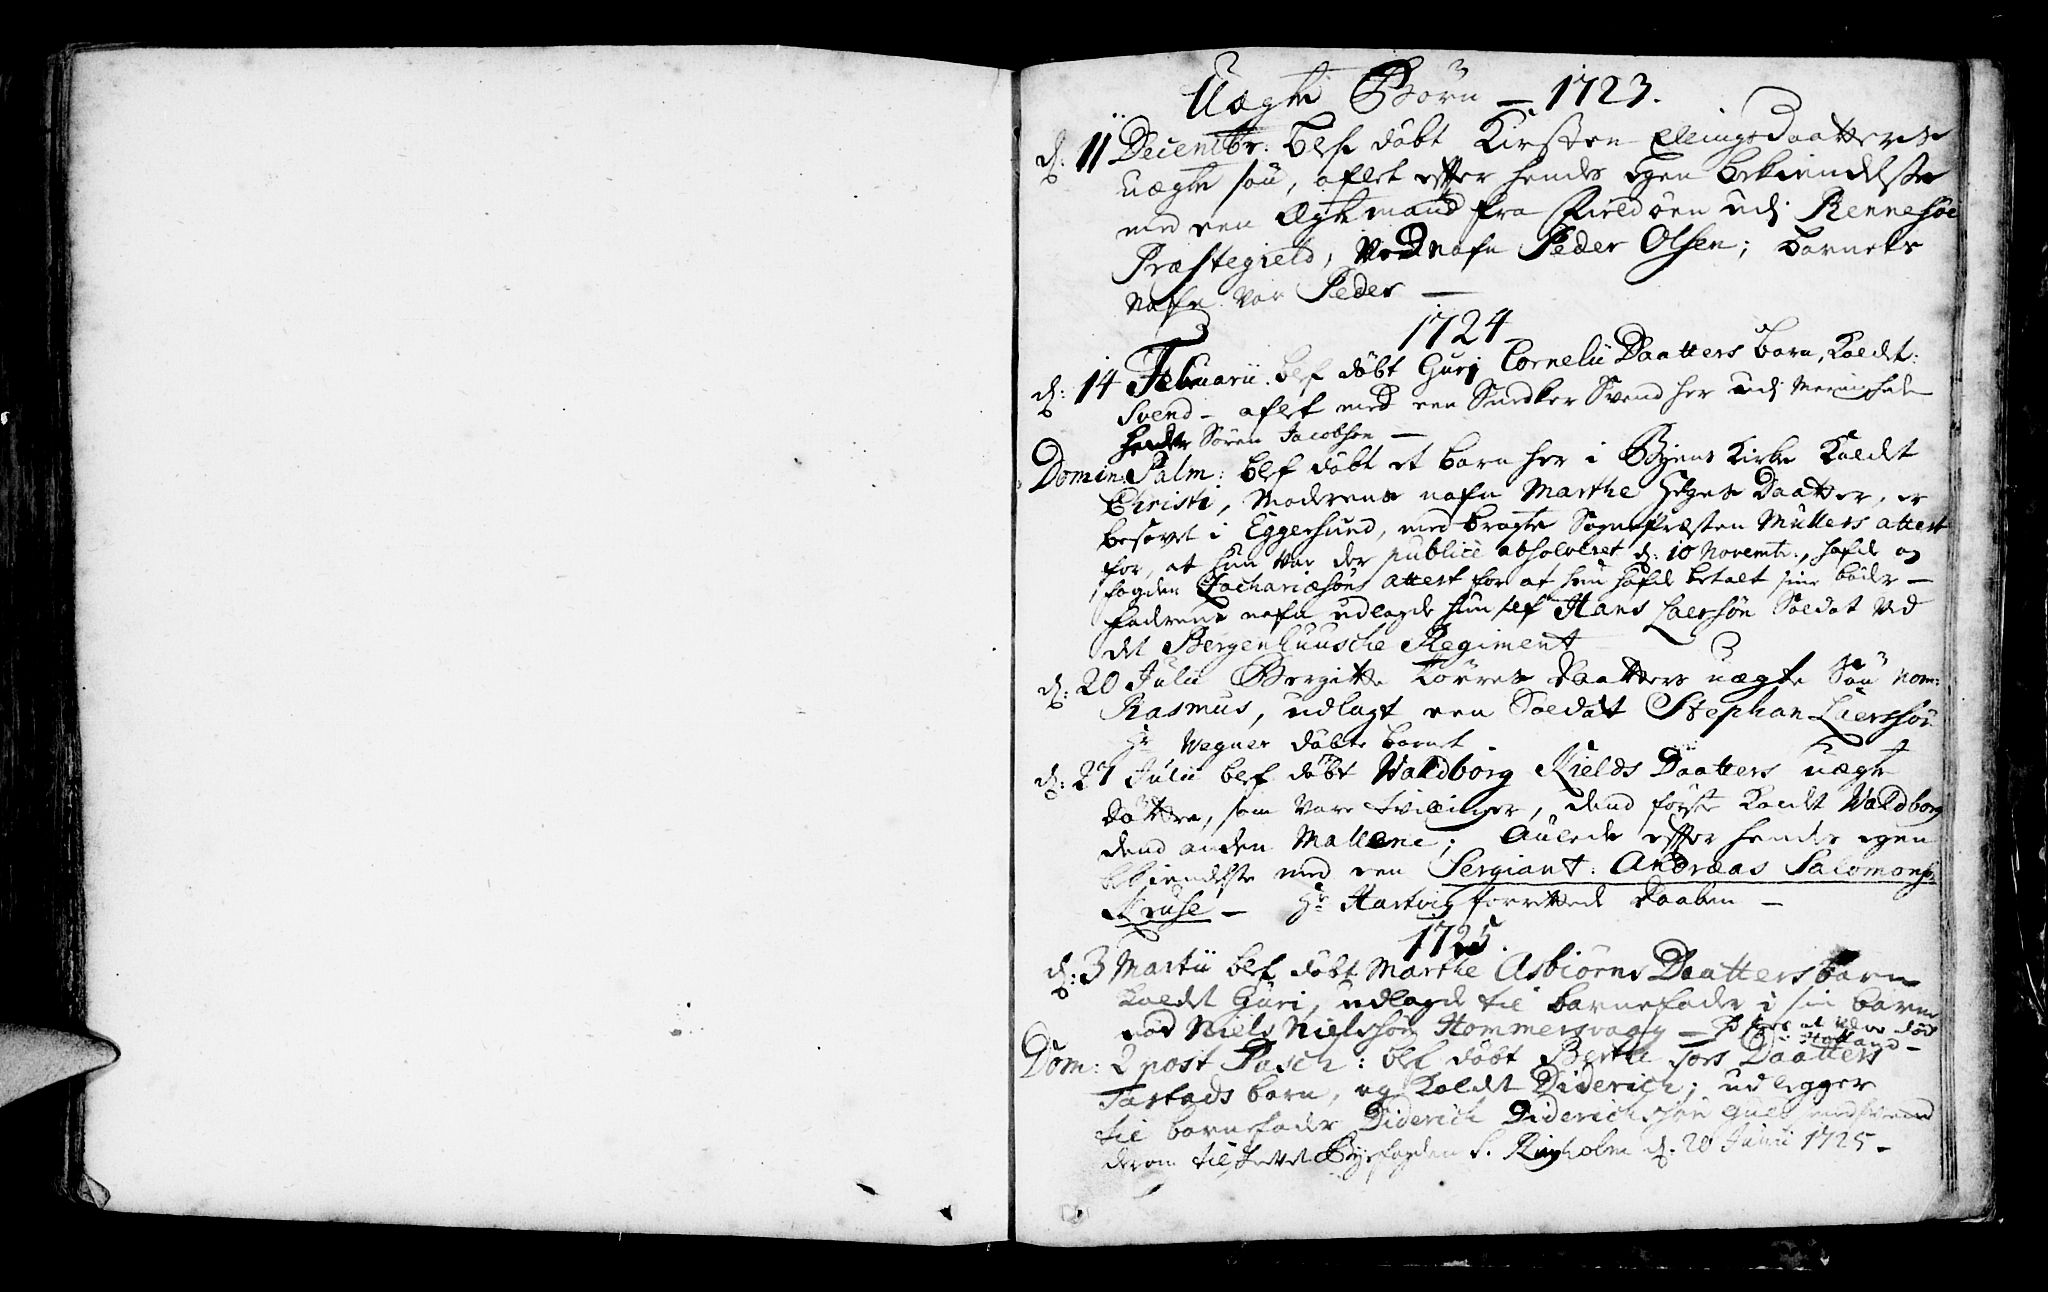 Uægte Børn — 1723.
d: 11 Decembr: blef døbt Kirsten Ellingsdaatters
uægte søn, aflet effter hendes egen bekiendelse
med een Ægtemand fra Fieldøen udj Rennesøe
Præstegield, ved nafn Peder Olsen; barnets
nafn var Peder —
1724
d: 14 Februarii blef døbt Guri Cornelii Daatters barn, kaldet
Svend — aflet med een Snedker Svend her udj
Søren Jacobsen —
Domin: Palm: blef døbt et barn her i Byens Kirke kaldet
Christi, Moderens nafn Marthe Helges Daatter, er
besovet i Eggersund, med bragte Sognepræsten Müllers attest
for, at hun var der publicè absolveret d: 10 Novemb:, hafde og
fogden Zachariæsøns attest for at hun hafde betalt sine bøder —
Faderens nafn udlagde hun self Hans Laersøn Soldat ved
det Bergenhuusche Regiment
d: 20 Julii Bergitte Torres Daatters uægte Søn nom:
Rasmus, udlagt een Soldat Stephan Laerssøn
Hr Wegner døbte barnet
d: 27 Julii blef døbt Waldborg Kields Daatters uægte
døttre, som vare tvillinger, dend første kaldet Waldborg
dend anden Mallene; aulede effter hendes egen
bekiendelse med een Sergiant: Andræas Salomons:
Kruse — Hr Hartvig forrettede daaben —
1725.
d: 3 Martii blef døbt Marthe Asbiørns Daatters barn
kaldet Guri, udlagde til barnefader i sin barns
nød Niels Nielssøn Hommersvaag — at være død
i Holland —
Dom: 2 post Pasch: blef døbt Berthe Tors Daatters
Tastads barn, og kaldet Diderich; udlegger
til barnefader Diderich Diderichssøn
derom til Byefogden S. Ringholm d. 20 Junii 1725 —